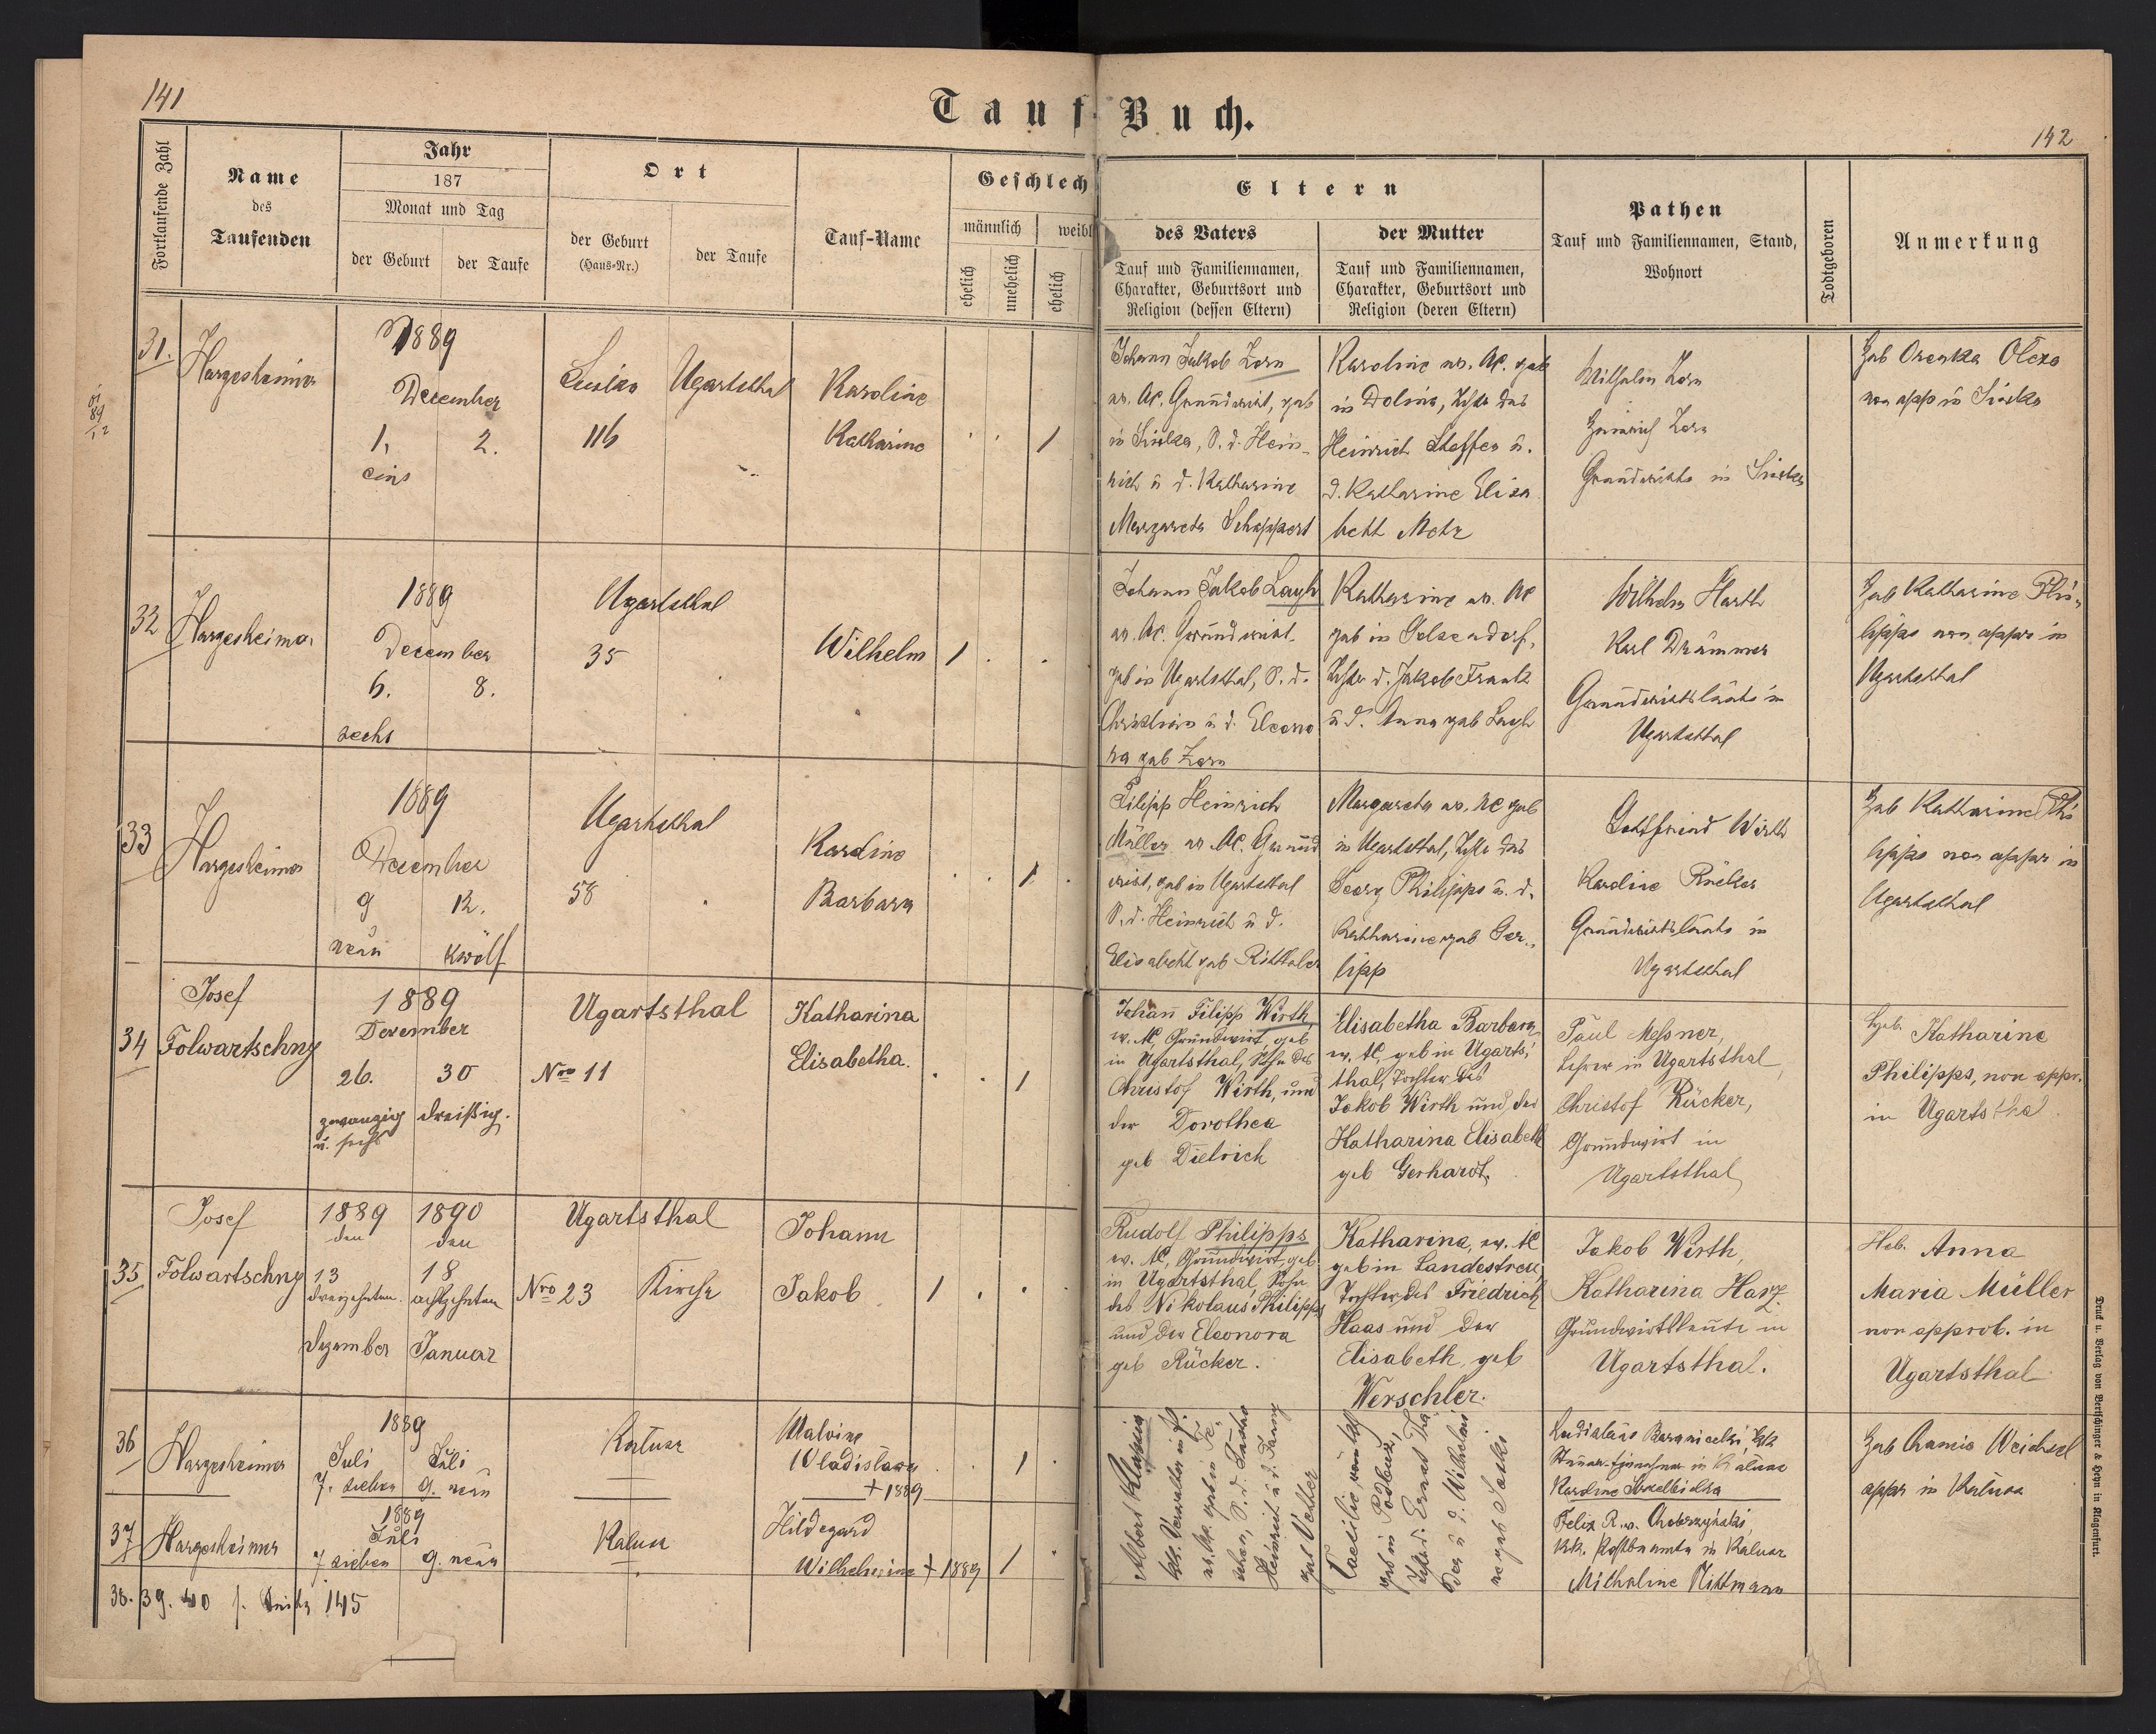 141
Tauf Buch.
142
Fortlaufende Zahl
Name
des
Taufenden
Jahr
187
Monat und Tag
der Geburt
der Taufe
Ort
der Geburt
(Haus-Nr.)
der Taufe
Tauf-Name
Geschlech
männlich
weibl
ehelich
unehelich
ehelich
Eltern
des Vaters
Tauf und Familiennamen,
Charakter, Geburtsort und
Religion (dessen Eltern)
der Mutter
Tauf und Familiennamen,
Charakter, Geburtsort und
Religion (deren Eltern)
Pathen
Tauf und Familiennamen, Stand,
Wohnort
Todtgeboren
Anmerkung
31.
Hargesheimer
1889
December
1.
2.
eins
116
Ugartsthal
Karoline
Katharine
1
Johann Jakob Zorn
ev. AC. Grundwirt, geb
in, S. d. Hein-
rich u d. Katharine
Margareta Scheppert
Karoline ev. AC. geb
in Dolina, des
Heinrich Steffen u.
d. Katharine Elisa
beth Motz
Wilhelm Zorn
Heinrich Zorn
Grundwirte in
Heb Olexa
non app in
32
Hargesheimer
1889
December
6.
8.
sechs
Ugartsthal
35
Wilhelm
1
Johann Jakob
ev. AC. Grundwirt.
geb in Ugartsthal, S. d.
Christian u d. Eleono
ra geb Zorn
Katharine ev. AC
geb in Gelsendorf,
d. Jakob
u d. Anna geb
Wilhelm Harth
Karl
Grundwirtsleute in
Ugartsthal
Heb Katharine Phi-
lipps non appr in
Ugartsthal
33
Hargesheimer
1889
December
9
12.
neun
zwölf
Ugartsthal
58
Karoline
Barbara
1
Filipp Heinrich
Müller ev AC. Grund
wirt, geb in Ugartsthal
S. d. Heinrich u d.
Elisabeth geb
Margareta ev. AC geb
in Ugartsthal, des
Georg Philipps u. d.
Katharine geb Ger-
lipp
Gottfried Wirth
Karoline Rücker
Grundwirtsleute in
Ugartsthal
Heb Katharine Phi
lipps non appr in
Ugartsthal
34
Josef
Folwartschny
1889
Dezember
26.
30
zwanzig
u. sechs
dreißig.
Ugartsthal
Nro 11
Katharina
Elisabetha.
1
Johann Filipp Wirth,
ev. AC, Grundwirt, geb
in Ugartsthal, Sohn des
Christof Wirth, und
der Dorothea
geb Dietrich
Elisabetha Barbara,
ev. AC, geb in Ugarts-
thal, Tochter des
Jakob Wirth und der
Katharina Elisabeth
geb Gerhardt,
Paul Meßner,
Lehrer in Ugartsthal,
Christof Rücker,
Grundwirt in
Ugartsthal
Heb. Katharine
Philipps, non appr.
in Ugartsthal
35
Josef
Folwartschny
1889
den
13
dreizehnten
Dezember
1890
den
18
achtzehnten
Januar
Ugartsthal
Nro 23
Kirche
Johann
Jakob
1
Rudolf Philipps
ev. AC, Grundwirt, geb
in Ugartsthal, Sohn
des Nikolaus Philipps
und der Eleonora
geb Rücker.
Katharina, ev. AC
geb in Landestreu,
Tochter des Friedrich
Haas und der
Elisabeth, geb
Werschler.
Jakob Wirth,
Katharina Harz
Grundwirtsleute in
Ugartsthal.
Heb. Anna
Maria Müller
non approb. in
Ugartsthal
36
Hargesheimer
1889
Juli
Juli
7. sieben
9. neun
Kalusz
Malvine
Wladislawa
+ 1889
1
in Kalusz
Karoline
Heb Chamie Weichsel
appr in Kalusz
37
Hargesheimer
1889
Juli
7 sieben
9. neun
Kalusz
Hildegard
Wilhelmine + 1889
1
Felix R. v.
kk. Postbeamte in Kalusz
Michaline Nittmann
38. 39. 40 s. Seite 145
Druck u. Verlag von Bertschinger & Heyn in Klagenfurt.